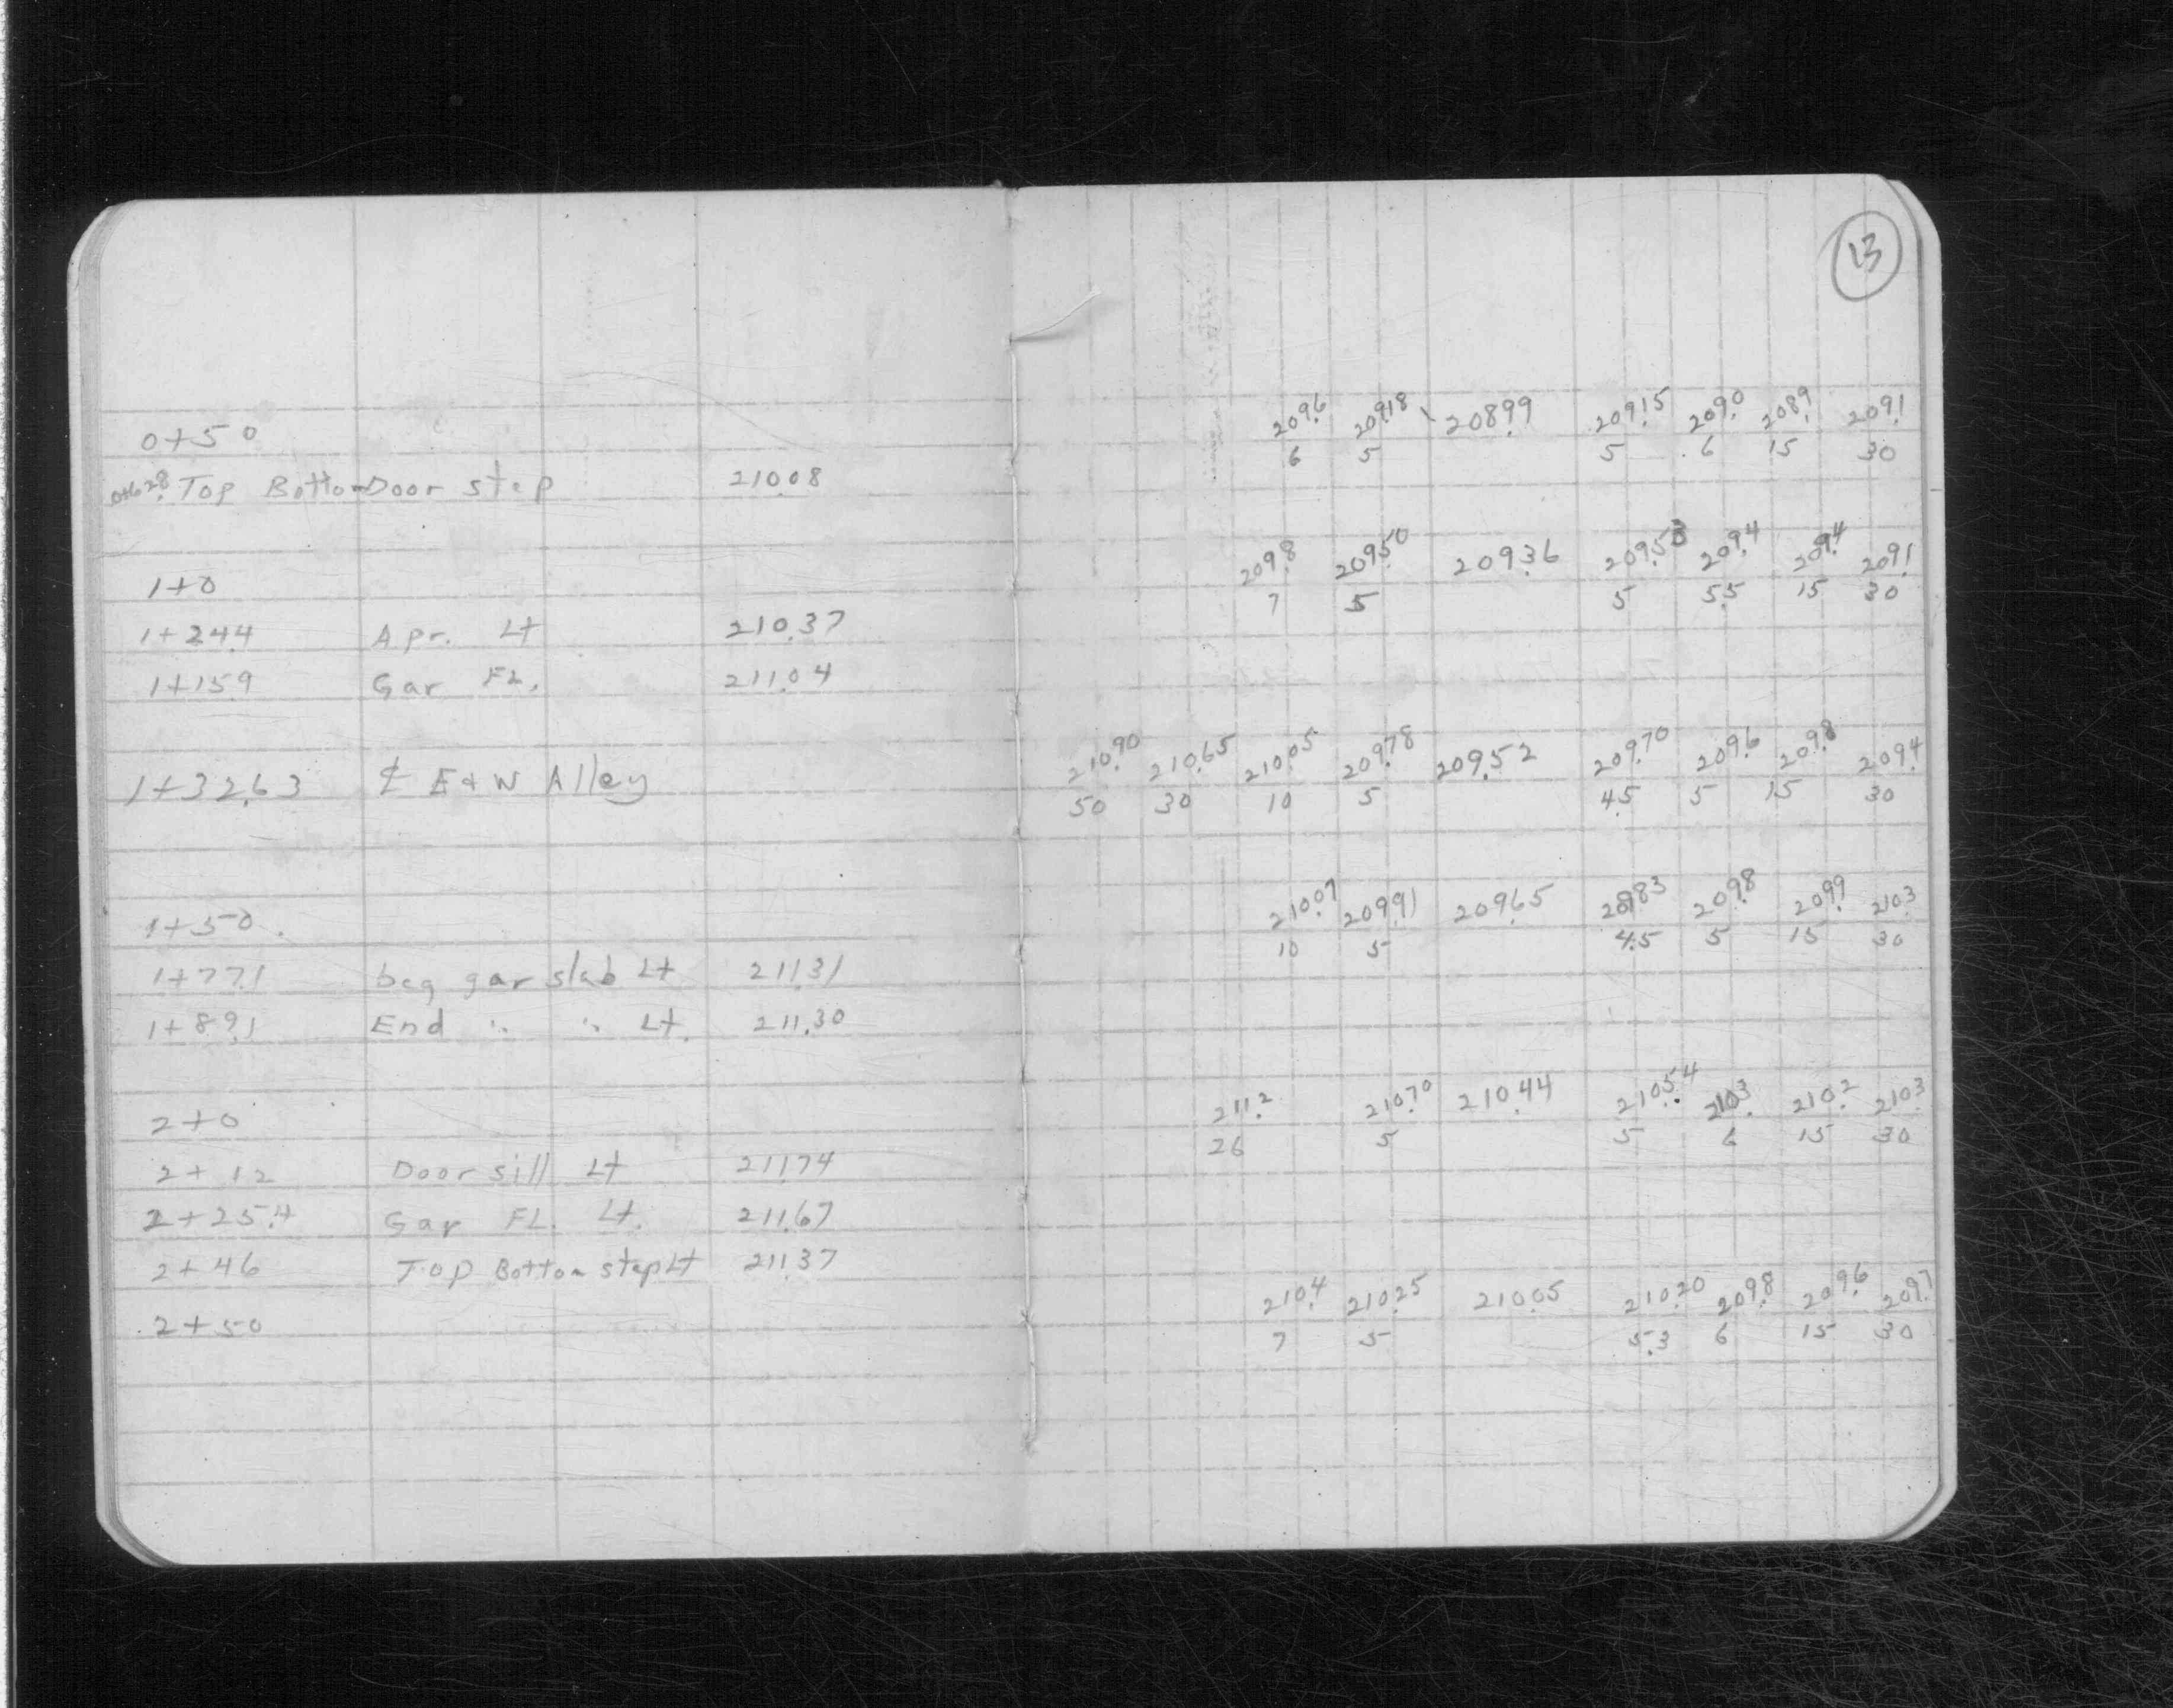 13
0+50 209.6 209.18 208.99 209.15 209.0 208.9 209.1
6 5 5 6 15 30
0+62.8 Top Bottom Door step 210.08
209.8 209.50 209.36 209.53 209.4 209.4 209.1
1+0 7 5 5 5.5 15 30
1+24.4 Apr. Lt 210.37
1+15.9 Gar FL. 211.04
210.90 210.65 210.05 209.78 209.52 209.70 209.6 209.8 209.4
1+32.63 ℄ E & W Alley 50 30 10 5 4.5 5 15 30
210.07 209.91 209.65 209.83 209.8 209.9 210.3
1+50. 10 5 4.5 5 15 30
1+77.1 beg gar slab Lt 211.31
1+89.1 End " " Lt. 211.30
211.2 210.70 210.44 210.54 210.3 210.2 210.3
2+0 26 5 5 6 15 30
2+12 Door sill Lt 211.74
2+25.4 Gar FL. Lt. 211.67
2+46 Top Bottom step Lt 211.37
210.4 210.25 210.05 210.20 209.8 209.6 209.7
2+50 7 5 5.3 6 15 30